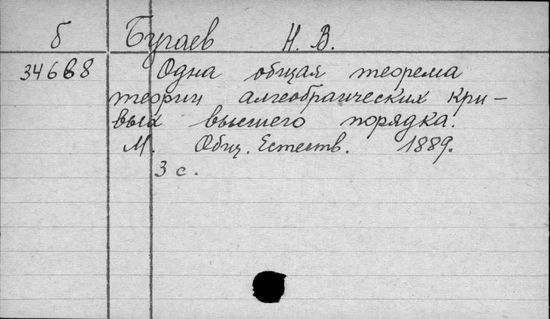 б Бугаев Н. В.
34668 Одна общая теорема
теории алгебраических кри-
вых высшего порядка.
М. Общ. Естеств. 1889.
3 с.